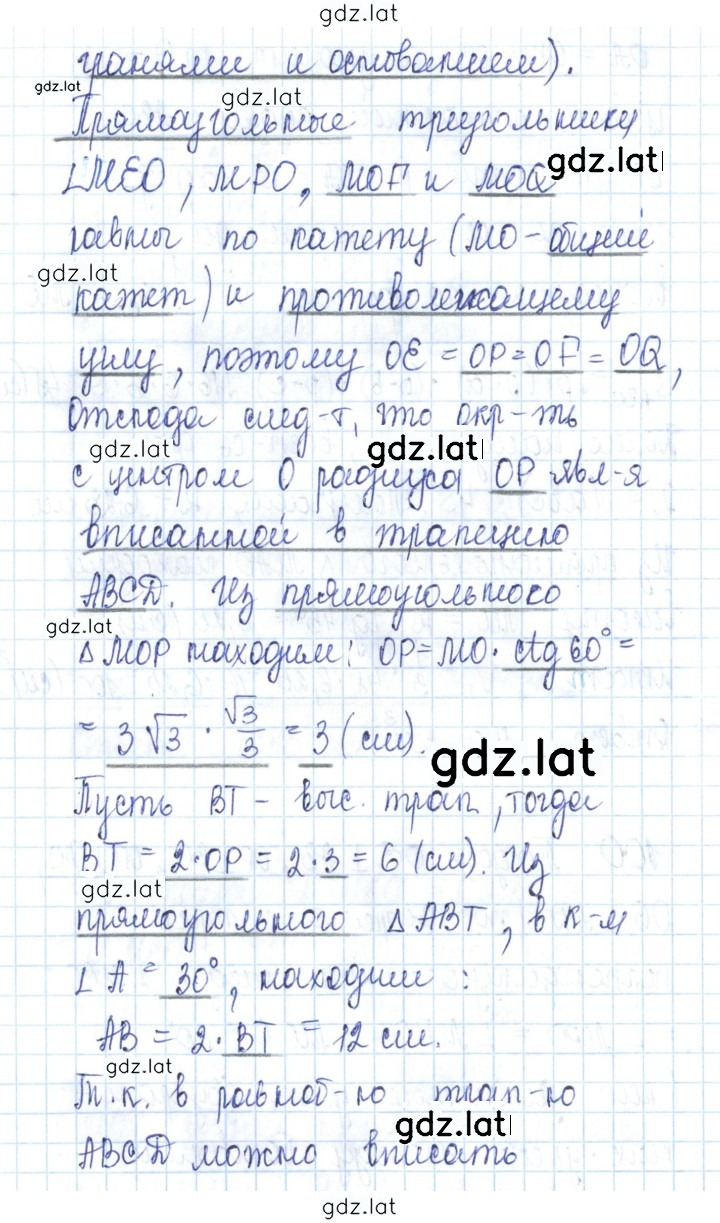 gdz.lat
гранями и основанием).
gdz.lat
gdz.lat
Прямоугольные треугольники
gdz.lat
∠MEO, MPO, MOF и MOQ
равны по катету (MO - общий
gdz.lat
катет) и противолежащему
углу, поэтому OE = OP = OF = OQ,
Отсюда след-т, что окр-ть
gdz.lat
gdz.lat
с центром O радиуса OP явл-я
вписанной в трапецию
ABCD. Из прямоугольного
gdz.lat
△ MOP находим: OP = MO · ctg 60° =
= 3√3 · √3/3 = 3 (см).
gdz.lat
Пусть BT - выс. трап., тогда
BT = 2 · OP = 2 · 3 = 6 (см). Из
gdz.lat
прямоугольного △ ABT, в к-м
∠ A = 30°, находим:
AB = 2 · BT = 12 см.
gdz.lat
Т.к. в равноб-ю трап-ю
gdz.lat
ABCD можно вписать
gdz.lat